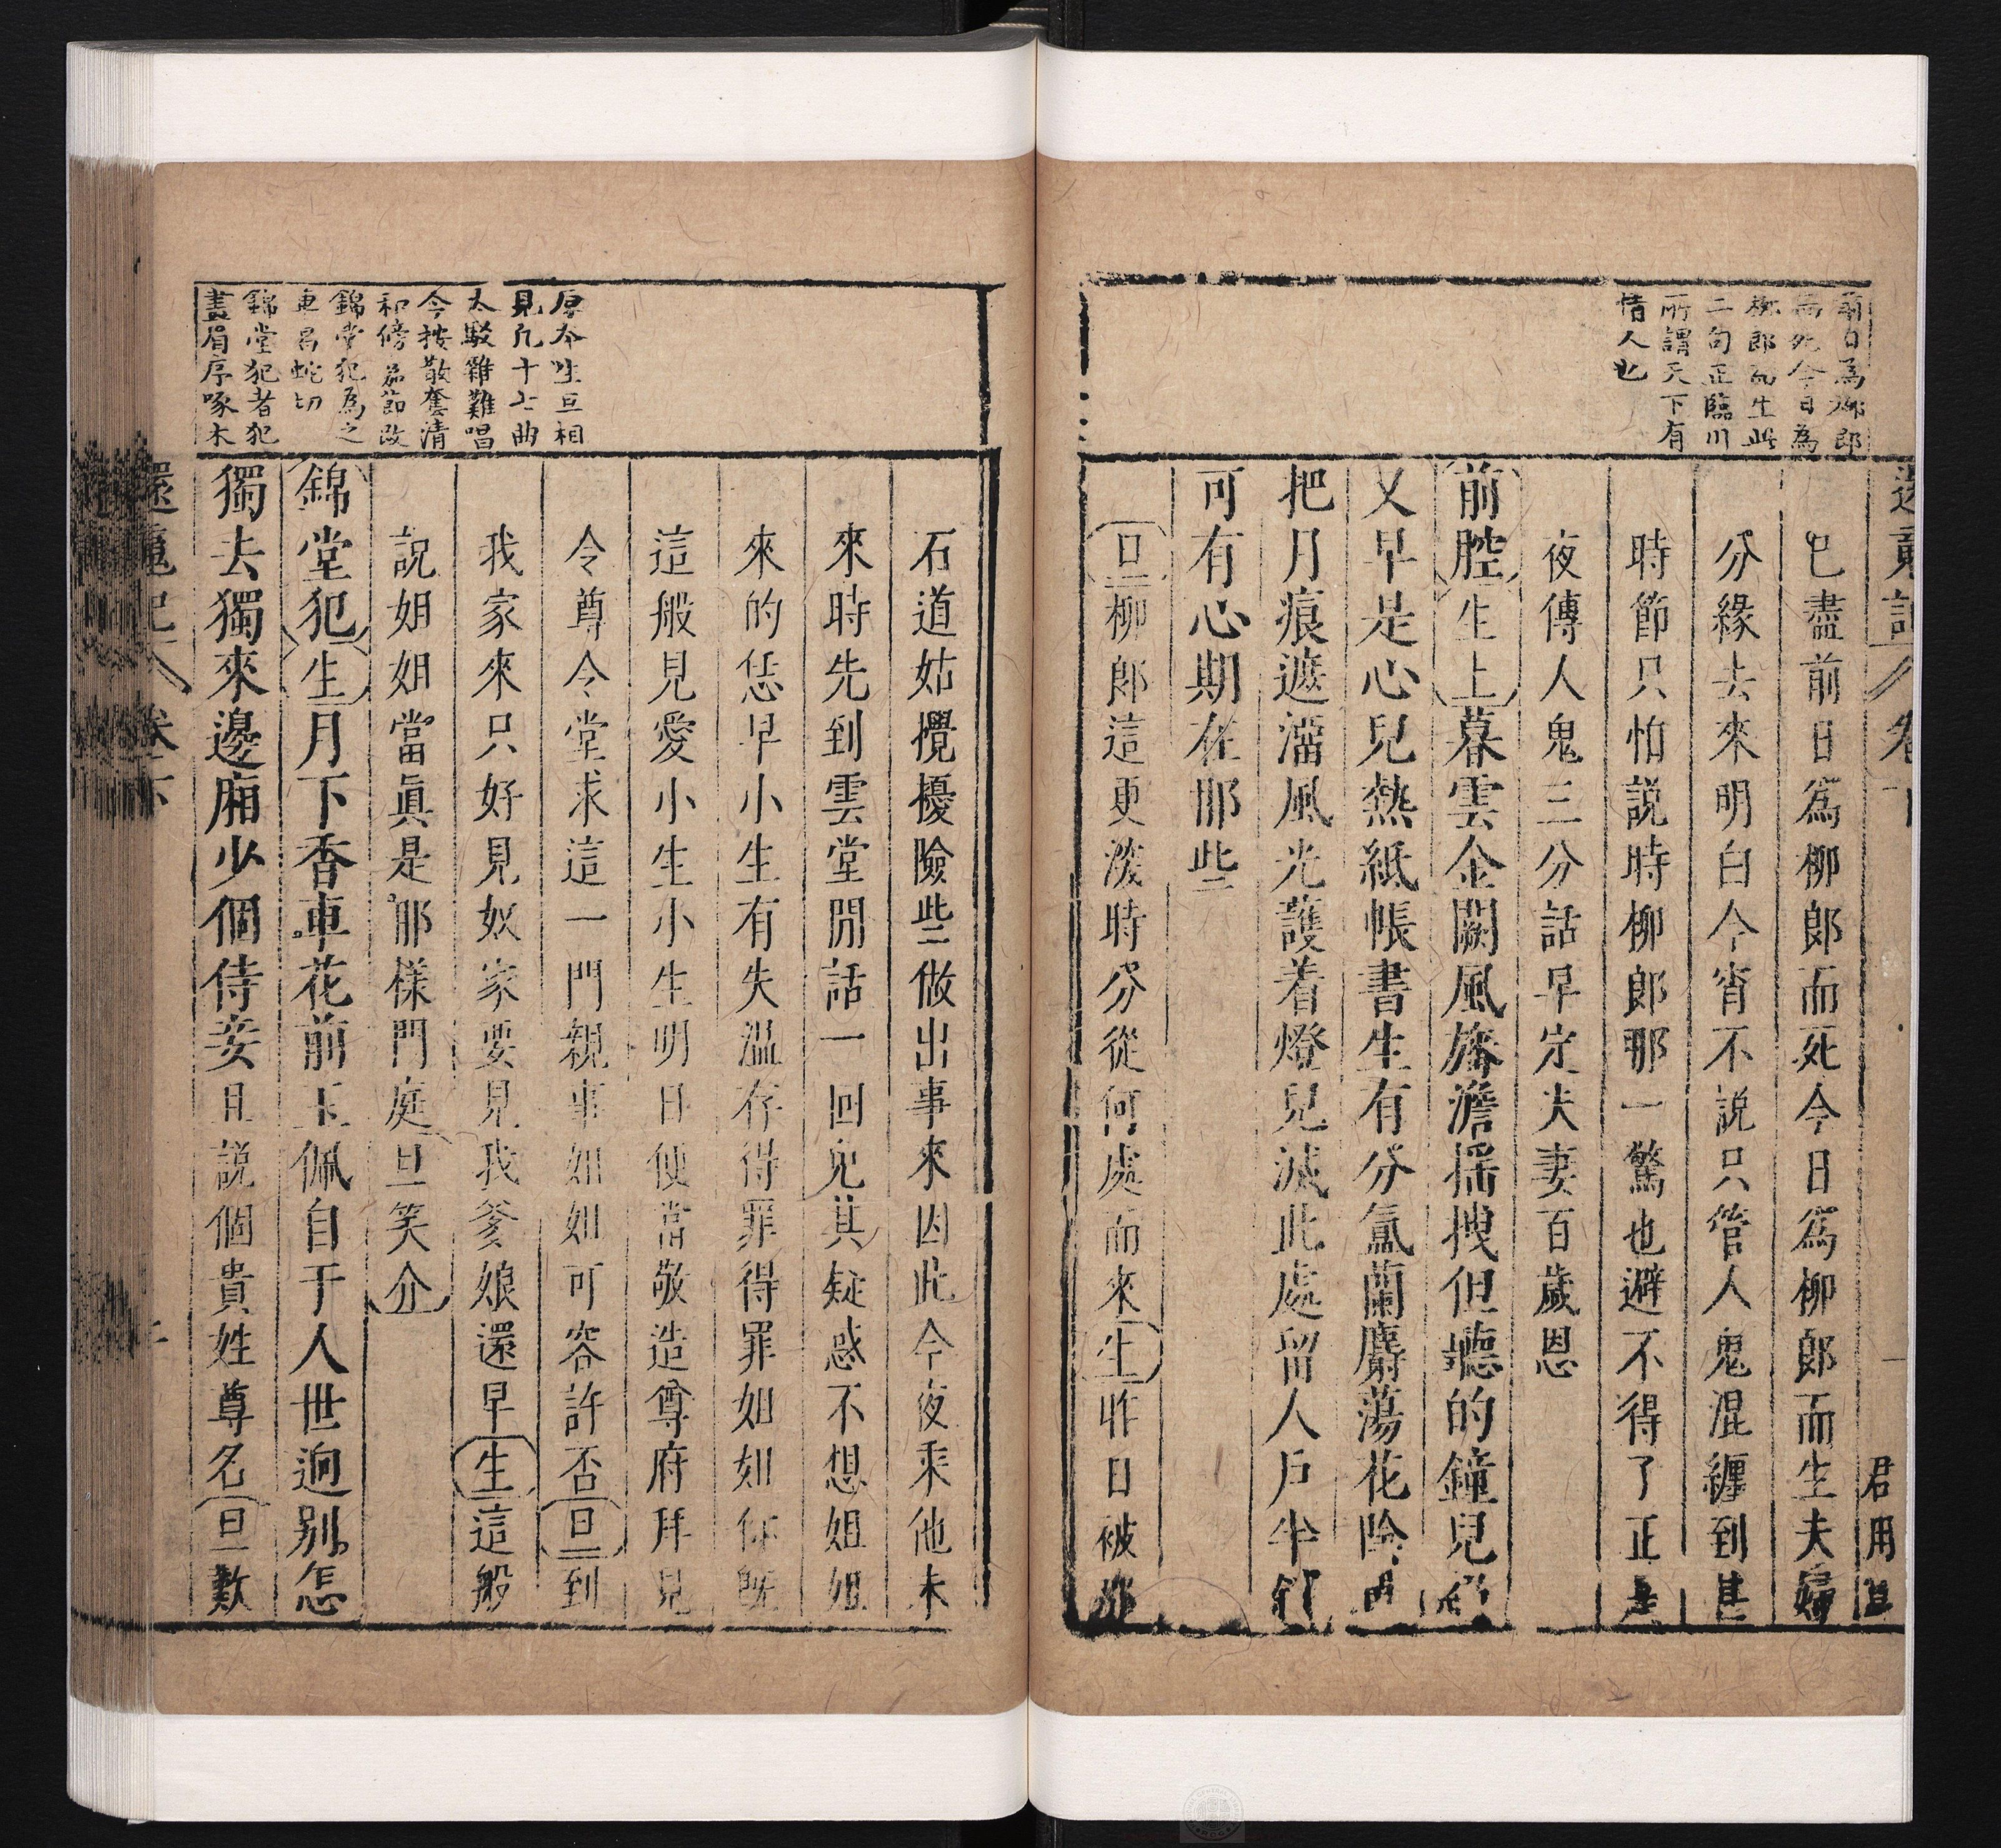 還魂記 卷下
君用
前日爲柳郎
而死今日爲
柳郎而生此
二句正臨川
所謂天下有
情人也
已盡前日爲柳郎而死今日爲柳郎而生夫婦
分緣去來明白今宵不說只管人鬼混纏到甚
時節只怕說時柳郎那一驚也避不得了正是
夜傳人鬼三分話早定夫妻百歲恩
前腔生上暮雲金闕風旛澹搖拽但聽的鐘兒
又早是心兒熱紙帳書生有分氳蘭麝蕩花陰
把月痕遮溜風光護着燈兒滅此處留人戶半
可有心期在那些
旦柳郎這更深時分從何處而來生昨日被
原本生旦相
見凡十七曲
太駁雜難唱
今按散套清
和傍粧節改
錦堂犯爲之
車昌蛇切
錦堂犯者犯
畫眉序啄木
石道姑攪擾險些做出事來因此今夜乘他未
來時先到雲堂閒話一回免其疑惑不想姐姐
來的恁早小生有失溫存得罪得罪如如你既
這般見愛小生小生明日便當敬造尊府拜見
令尊令堂求這一門親事如如可容許否旦到
我家來只好見奴家要見我爹娘還早生這般
說姐姐當眞是那樣門庭旦笑介
錦堂犯生月下香車花前玉佩自于人世逈別怎
獨去獨來邊廂少個侍妾且說個貴姓尊名旦歎
還魂記 卷下